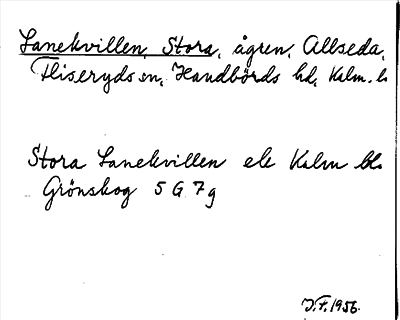 Lanekvillen, Stora, ågren, Allseda,
Fliseryds sn, Handbörds hd, Kalm. l.
Stora Lanekvillen ek Kalm bl.
Grönskog 5 G 7 g
J.F. 1956.